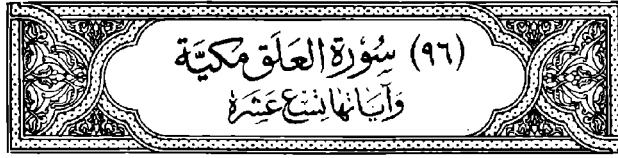 (٩٦) سُورَة العَلَق مَكيَّة
وَآيَاتهَا تِسْعَ عَشَرَة